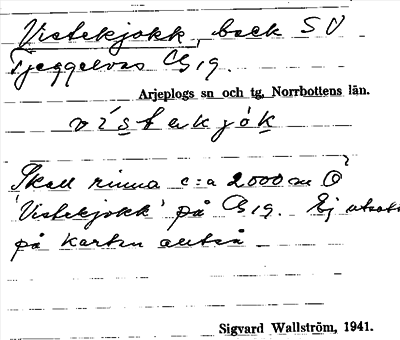 Vistekjokk, bäck SV
Tjeggelvas C19.
Arjeplogs sn och tg, Norrbottens län.
vístekjòk
Skall rinna c:a 2000 m O
'Vistekjokk' på C19. Ej utsatt
på kartan alltså
Sigvard Wallström, 1941.